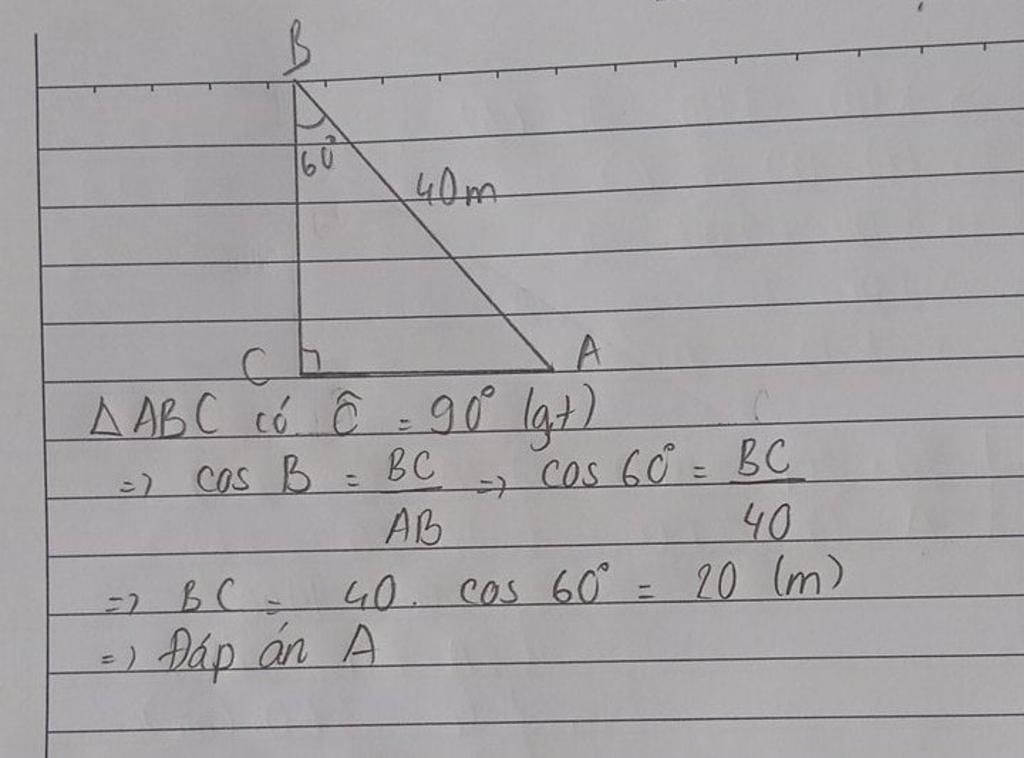 B
60°
40m
C
A
Δ ABC có Ĉ = 90° (gt)
=> cos B = BC/AB => cos 60° = BC/40
=> BC = 40. cos 60° = 20 (m)
=> Đáp án A